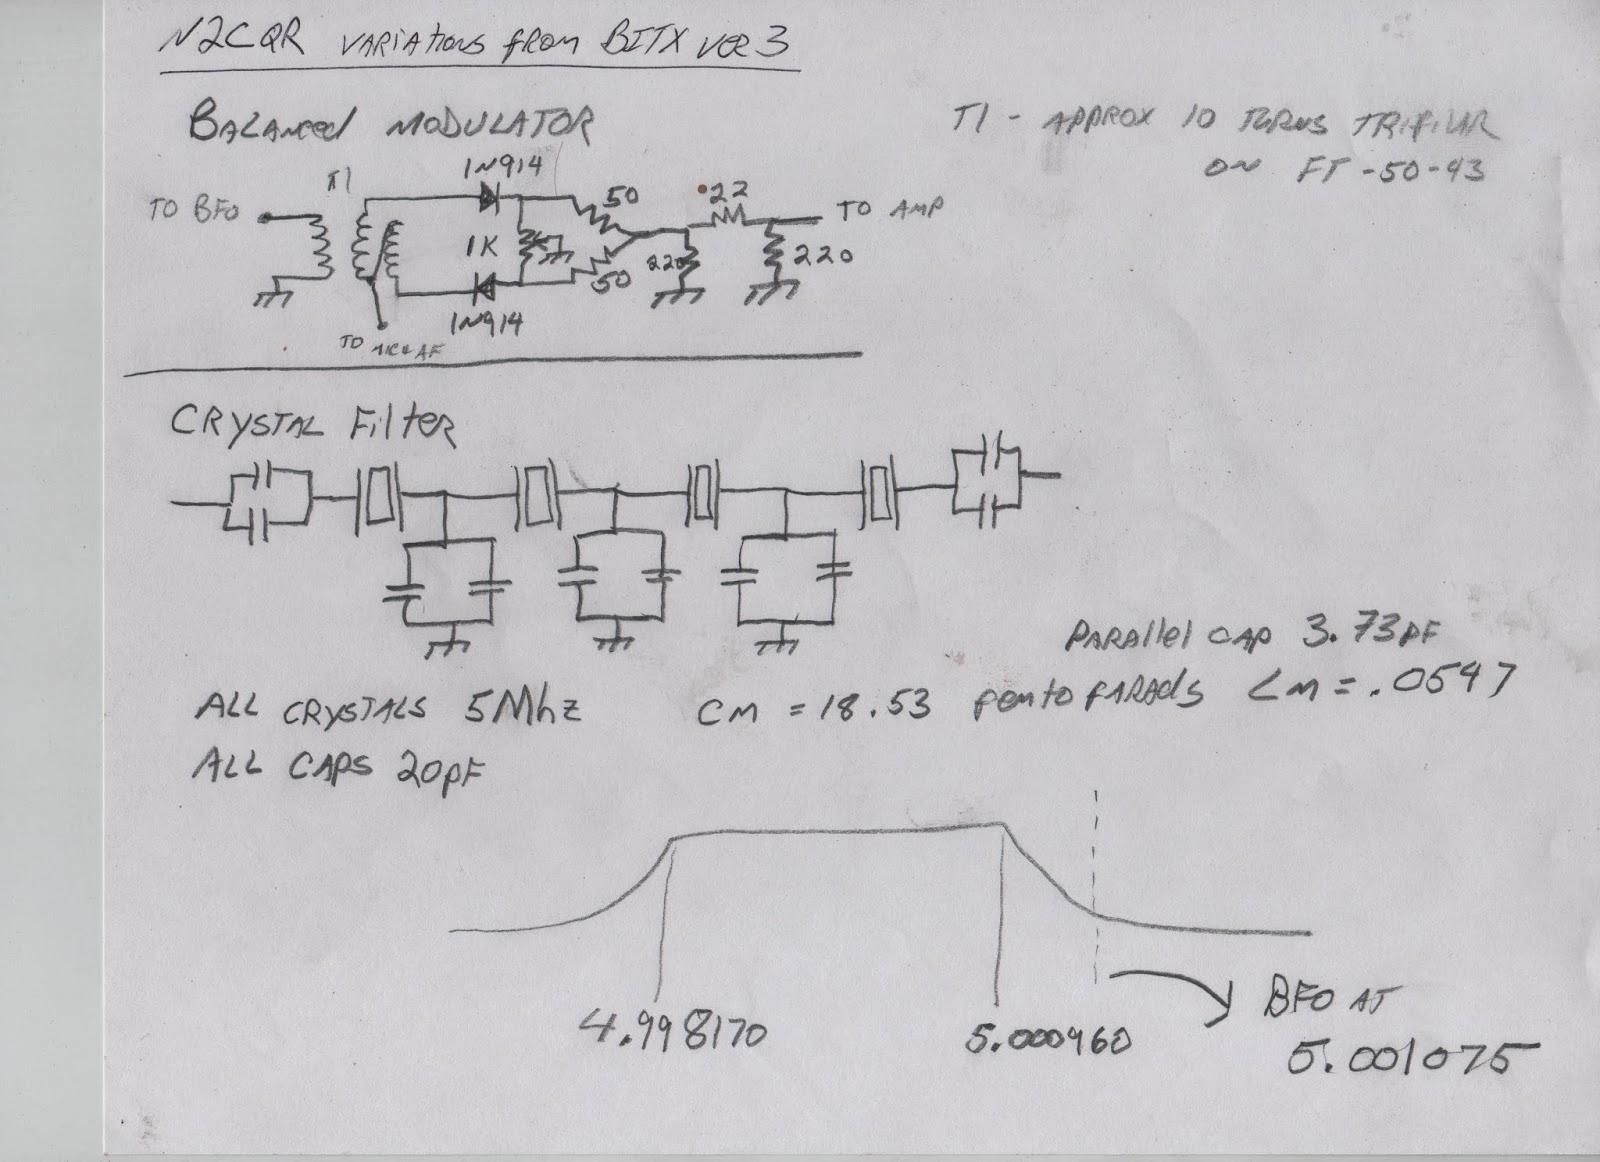 N2CQR VARIATIONS FROM BITX VER 3
BALANCED MODULATOR
T1 - APPROX 10 TURNS TRIFILAR
ON FT-50-43
1N914
T1
50
.22
TO BFO
TO AMP
1K
220
220
50
1N914
TO MIC AF
CRYSTAL FILTER
PARALLEL CAP 3.73PF
ALL CRYSTALS 5Mhz
CM = 18.53 femtofARAds LM = .0547
ALL CAPS 20pF
4.998170
5.000960
BFO AT
5.001075